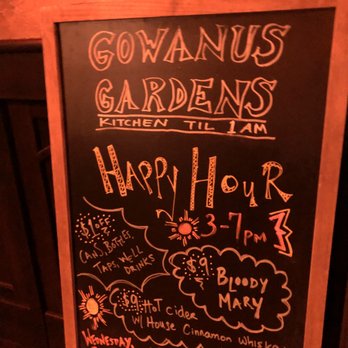 GOWANUS
GARDENS
KITCHEN TIL 1AM
HAPPY HOUR
3-7PM
$1 OFF
CANS, BOTTLES
TAPS, WELL
DRINKS
$9
BLOODY
MARY
$9 HOT CIDER
W/ HOUSE CINNAMON WHISKEY
WEDNESDAY,